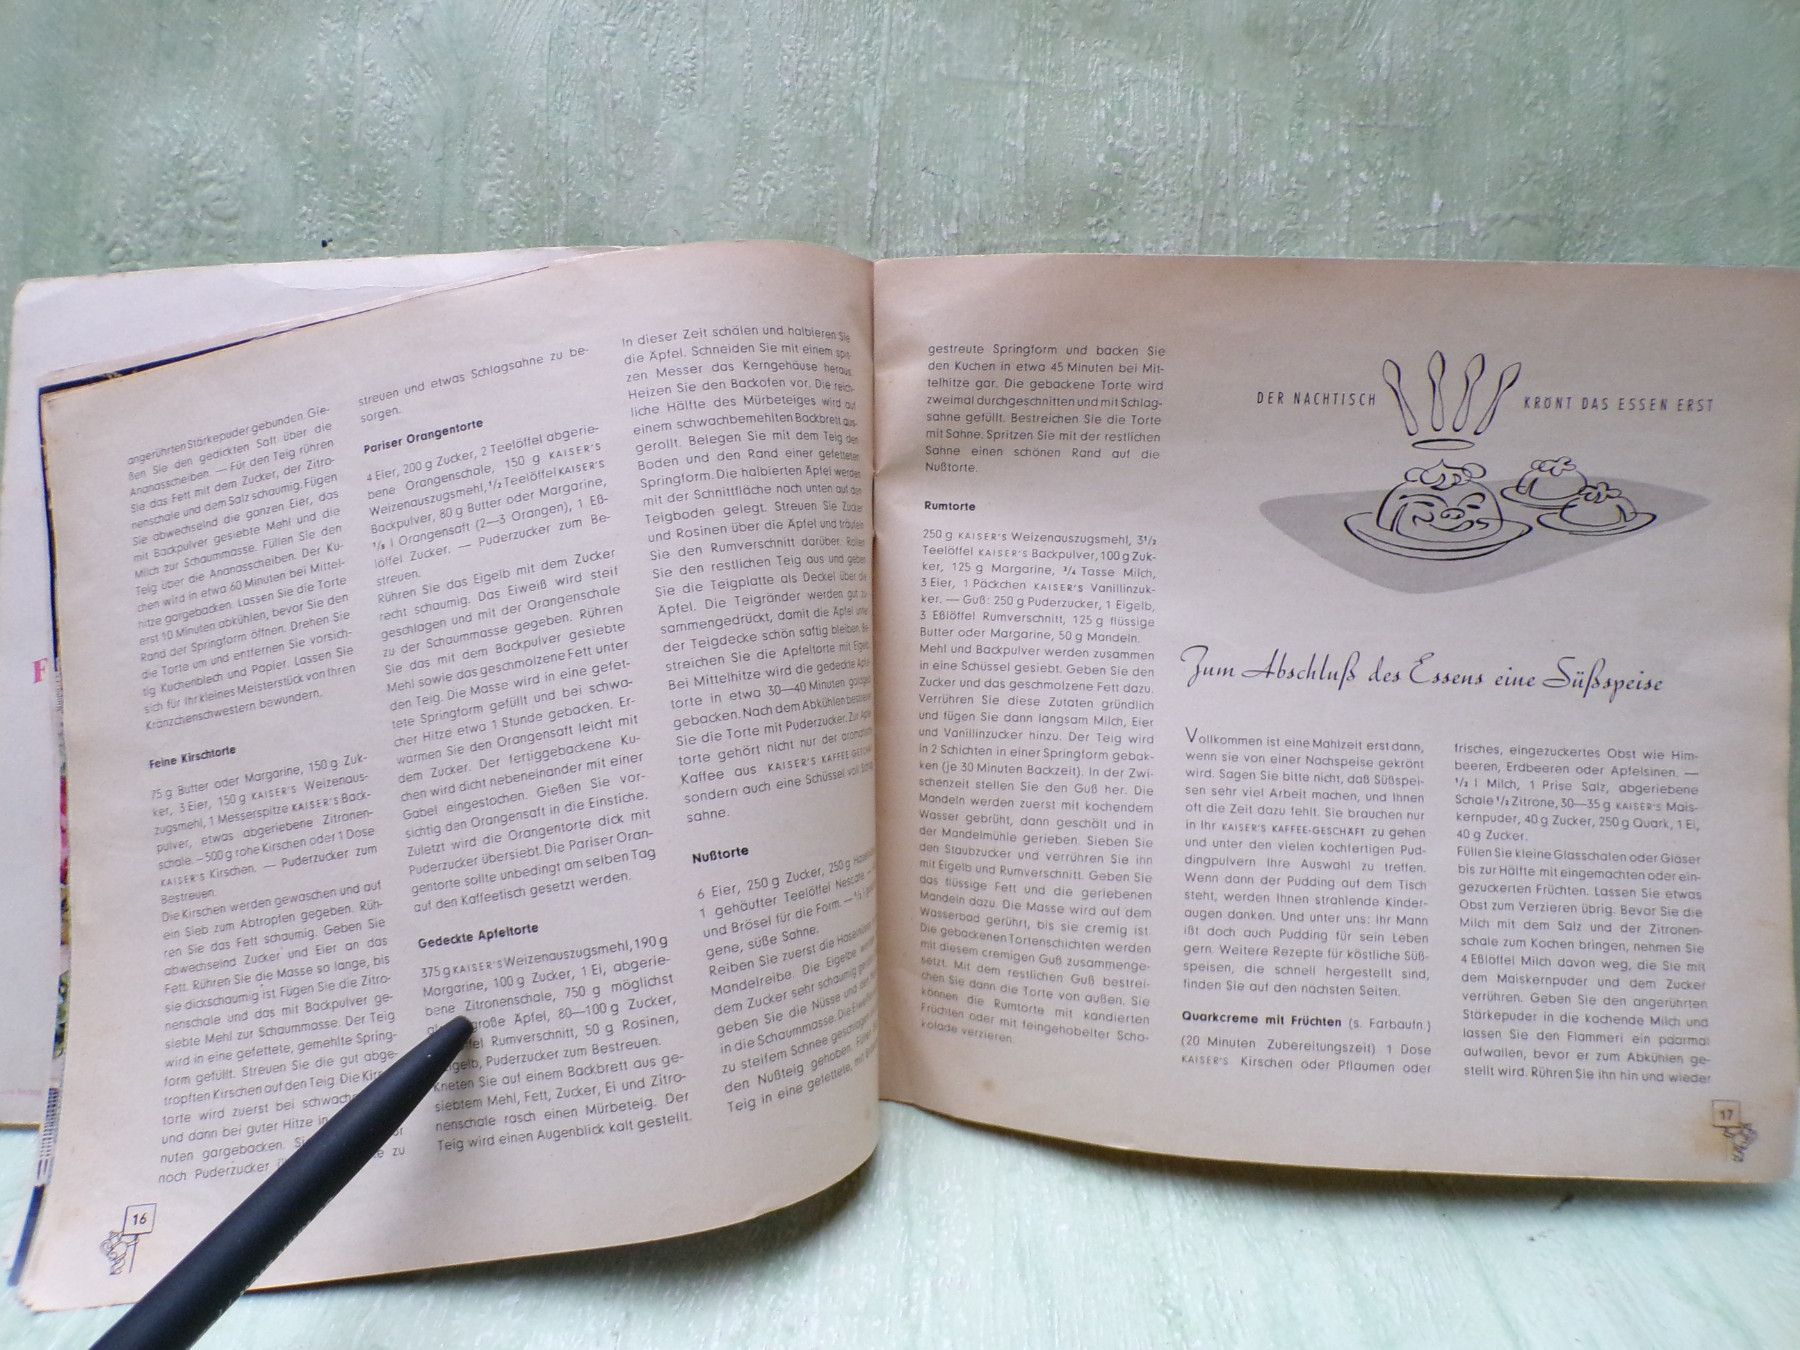 angerührten Stärkepuder gebunden. Gie-
ßen Sie den gedickten Saft über die
Ananasscheiben. — Für den Teig rühren
Sie das Fett mit dem Zucker, der Zitro-
nenschale und dem Salz schaumig. Fügen
Sie abwechselnd die ganzen Eier, das
mit Backpulver gesiebte Mehl und die
Milch zur Schaummasse. Füllen Sie den
Teig über die Ananasscheiben. Der Ku-
chen wird in etwa 60 Minuten bei Mittel-
hitze gargebacken. Lassen Sie die Torte
erst 10 Minuten abkühlen, bevor Sie den
Rand der Springform öffnen. Drehen Sie
die Torte um und entfernen Sie vorsich-
tig Kuchenblech und Papier. Lassen Sie
sich für Ihr kleines Meisterstück von Ihren
Kränzchenschwestern bewundern.
Feine Kirschtorte
75 g Butter oder Margarine, 150 g Zuk-
ker, 3 Eier, 150 g KAISER'S Weizenaus-
zugsmehl, 1 Messerspitze KAISER'S Back-
pulver, etwas abgeriebene Zitronen-
schale. – 500 g rohe Kirschen oder 1 Dose
KAISER'S Kirschen. — Puderzucker zum
Bestreuen.
Die Kirschen werden gewaschen und auf
ein Sieb zum Abtropfen gegeben. Rüh-
ren Sie das Fett schaumig. Geben Sie
abwechselnd Zucker und Eier an das
Fett. Rühren Sie die Masse so lange, bis
sie dickschaumig ist Fügen Sie die Zitro-
nenschale und das mit Backpulver ge-
siebte Mehl zur Schaummasse. Der Teig
wird in eine gefettete, gemehlte Spring-
form gefüllt. Streuen Sie die gut abge-
tropften Kirschen auf den Teig. Die
torte wird zuerst bei
und dann bei guter Hitze in
nuten gargebacken.
noch Puderzucker zu
16
streuen und etwas Schlagsahne zu be-
sorgen.
Pariser Orangentorte
4 Eier, 200 g Zucker, 2 Teelöffel abgerie-
bene Orangenschale, 150 g KAISER'S
Weizenauszugsmehl, 1/2 Teelöffel KAISER'S
Backpulver, 80 g Butter oder Margarine,
1/8 l Orangensaft (2—3 Orangen), 1 Eß-
löffel Zucker. — Puderzucker zum Be-
streuen.
Rühren Sie das Eigelb mit dem Zucker
recht schaumig. Das Eiweiß wird steif
geschlagen und mit der Orangenschale
zu der Schaummasse gegeben. Rühren
Sie das mit dem Backpulver gesiebte
Mehl sowie das geschmolzene Fett unter
den Teig. Die Masse wird in eine gefet-
tete Springform gefüllt und bei schwa-
cher Hitze etwa 1 Stunde gebacken. Er-
wärmen Sie den Orangensaft leicht mit
dem Zucker. Der fertiggebackene Ku-
chen wird dicht nebeneinander mit einer
Gabel eingestochen. Gießen Sie vor-
sichtig den Orangensaft in die Einstiche.
Zuletzt wird die Orangentorte dick mit
Puderzucker übersiebt. Die Pariser Oran-
gentorte sollte unbedingt am selben Tag
auf den Kaffeetisch gesetzt werden.
Gedeckte Apfeltorte
375 g KAISER'S Weizenauszugsmehl, 190 g
Margarine, 100 g Zucker, 1 Ei, abgerie-
bene Zitronenschale, 750 g möglichst
große Äpfel, 80—100 g Zucker,
Rumverschnitt, 50 g Rosinen,
Puderzucker zum Bestreuen.
Kneten Sie auf einem Backbrett aus ge-
siebtem Mehl, Fett, Zucker, Ei und Zitro-
nenschale rasch einen Mürbeteig. Der
Teig wird einen Augenblick kalt gestellt.
In dieser Zeit schälen und halbieren Sie
die Äpfel. Schneiden Sie mit einem spit-
zen Messer das Kerngehäuse heraus.
Heizen Sie den Backofen vor. Die reich-
liche Hälfte des Mürbeteiges wird auf
einem schwachbemehlten Backbrett aus-
gerollt. Belegen Sie mit dem Teig den
Boden und den Rand einer gefetteten
Springform. Die halbierten Äpfel werden
mit der Schnittfläche nach unten auf den
Teigboden gelegt. Streuen Sie Zucker
und Rosinen über die Äpfel und träufeln
Sie den Rumverschnitt darüber. Rollen
Sie den restlichen Teig aus und geben
Sie die Teigplatte als Deckel über die
Äpfel. Die Teigränder werden gut zu-
sammengedrückt, damit die Äpfel unter
der Teigdecke schön saftig bleiben. Be-
streichen Sie die Apfeltorte mit Eigelb.
Bei Mittelhitze wird die gedeckte Apfel-
torte in etwa 30—40 Minuten goldgelb
gebacken. Nach dem Abkühlen bestreuen
Sie die Torte mit Puderzucker. Zur Apfel-
torte gehört nicht nur der aromatische
Kaffee aus KAISER'S KAFFEE-GESCHÄFT,
sondern auch eine Schüssel voll Schlag-
sahne.
Nußtorte
6 Eier, 250 g Zucker, 250 g
1 gehäufter Teelöffel Nescafé
und Brösel für die Form. —
gene, süße Sahne.
Reiben Sie zuerst die Haselnüsse
Mandelreibe. Die Eigelbe werden
dem Zucker sehr schaumig
geben Sie die Nüsse und den
in die Schaummasse. Die
zu steifem Schnee geschlagen
den Nußteig gehoben.
Teig in eine gefettete, mit
gestreute Springform und backen Sie
den Kuchen in etwa 45 Minuten bei Mit-
telhitze gar. Die gebackene Torte wird
zweimal durchgeschnitten und mit Schlag-
sahne gefüllt. Bestreichen Sie die Torte
mit Sahne. Spritzen Sie mit der restlichen
Sahne einen schönen Rand auf die
Nußtorte.
Rumtorte
250 g KAISER'S Weizenauszugsmehl, 3 1/2
Teelöffel KAISER'S Backpulver, 100 g Zuk-
ker, 125 g Margarine, 3/4 Tasse Milch,
3 Eier, 1 Päckchen KAISER'S Vanillinzuk-
ker. — Guß: 250 g Puderzucker, 1 Eigelb,
3 Eßlöffel Rumverschnitt, 125 g flüssige
Butter oder Margarine, 50 g Mandeln.
Mehl und Backpulver werden zusammen
in eine Schüssel gesiebt. Geben Sie den
Zucker und das geschmolzene Fett dazu.
Verrühren Sie diese Zutaten gründlich
und fügen Sie dann langsam Milch, Eier
und Vanillinzucker hinzu. Der Teig wird
in 2 Schichten in einer Springform gebak-
ken (je 30 Minuten Backzeit). In der Zwi-
schenzeit stellen Sie den Guß her. Die
Mandeln werden zuerst mit kochendem
Wasser gebrüht, dann geschält und in
der Mandelmühle gerieben. Sieben Sie
den Staubzucker und verrühren Sie ihn
mit Eigelb und Rumverschnitt. Geben Sie
das flüssige Fett und die geriebenen
Mandeln dazu. Die Masse wird auf dem
Wasserbad gerührt, bis sie cremig ist.
Die gebackenen Tortenschichten werden
mit diesem cremigen Guß zusammenge-
setzt. Mit dem restlichen Guß bestrei-
chen Sie dann die Torte von außen. Sie
können die Rumtorte mit kandierten
Früchten oder mit feingehobelter Scho-
kolade verzieren.
DER NACHTISCH KRÖNT DAS ESSEN ERST
Zum Abschluß des Essens eine Süßspeise
Vollkommen ist eine Mahlzeit erst dann,
wenn sie von einer Nachspeise gekrönt
wird. Sagen Sie bitte nicht, daß Süßspei-
sen sehr viel Arbeit machen, und Ihnen
oft die Zeit dazu fehlt. Sie brauchen nur
in Ihr KAISER'S KAFFEE-GESCHÄFT zu gehen
und unter den vielen kochfertigen Pud-
dingpulvern Ihre Auswahl zu treffen.
Wenn dann der Pudding auf dem Tisch
steht, werden Ihnen strahlende Kinder-
augen danken. Und unter uns: Ihr Mann
ißt doch auch Pudding für sein Leben
gern. Weitere Rezepte für köstliche Süß-
speisen, die schnell hergestellt sind,
finden Sie auf den nächsten Seiten.
Quarkcreme mit Früchten (s. Farbaufn.)
(20 Minuten Zubereitungszeit) 1 Dose
KAISER'S Kirschen oder Pflaumen oder
frisches, eingezuckertes Obst wie Him-
beeren, Erdbeeren oder Apfelsinen. —
1/2 l Milch, 1 Prise Salz, abgeriebene
Schale 1/2 Zitrone, 30—35 g KAISER'S Mais-
kernpuder, 40 g Zucker, 250 g Quark, 1 Ei,
40 g Zucker.
Füllen Sie kleine Glasschalen oder Gläser
bis zur Hälfte mit eingemachten oder ein-
gezuckerten Früchten. Lassen Sie etwas
Obst zum Verzieren übrig. Bevor Sie die
Milch mit dem Salz und der Zitronen-
schale zum Kochen bringen, nehmen Sie
4 Eßlöffel Milch davon weg, die Sie mit
dem Maiskernpuder und dem Zucker
verrühren. Geben Sie den angerührten
Stärkepuder in die kochende Milch und
lassen Sie den Flammeri ein paarmal
aufwallen, bevor er zum Abkühlen ge-
stellt wird. Rühren Sie ihn hin und wieder
17
F